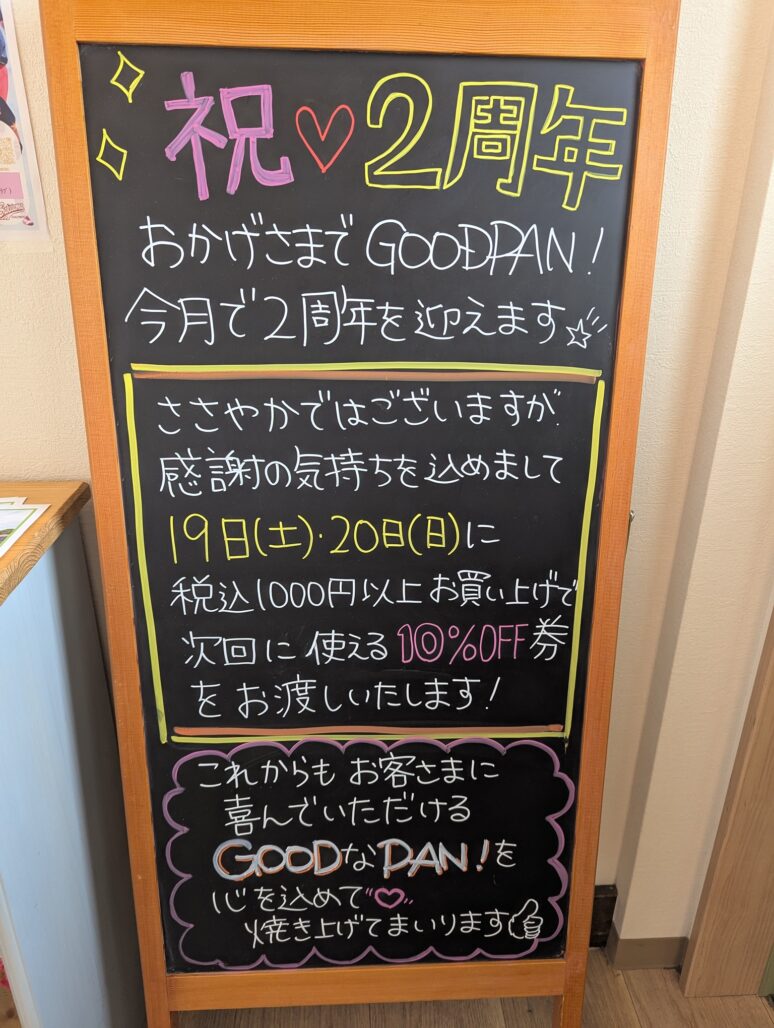 祝♡2周年
おかげさまで GOODPAN!
今月で2周年を迎えます☆
ささやかではございますが
感謝の気持ちを込めまして
19日(土)・20日(日)に
税込1000円以上お買い上げで
次回に使える10%OFF券
をお渡しいたします!
これからも お客さまに
喜んでいただける
GOODなPAN!を
心を込めて♡
焼き上げてまいります